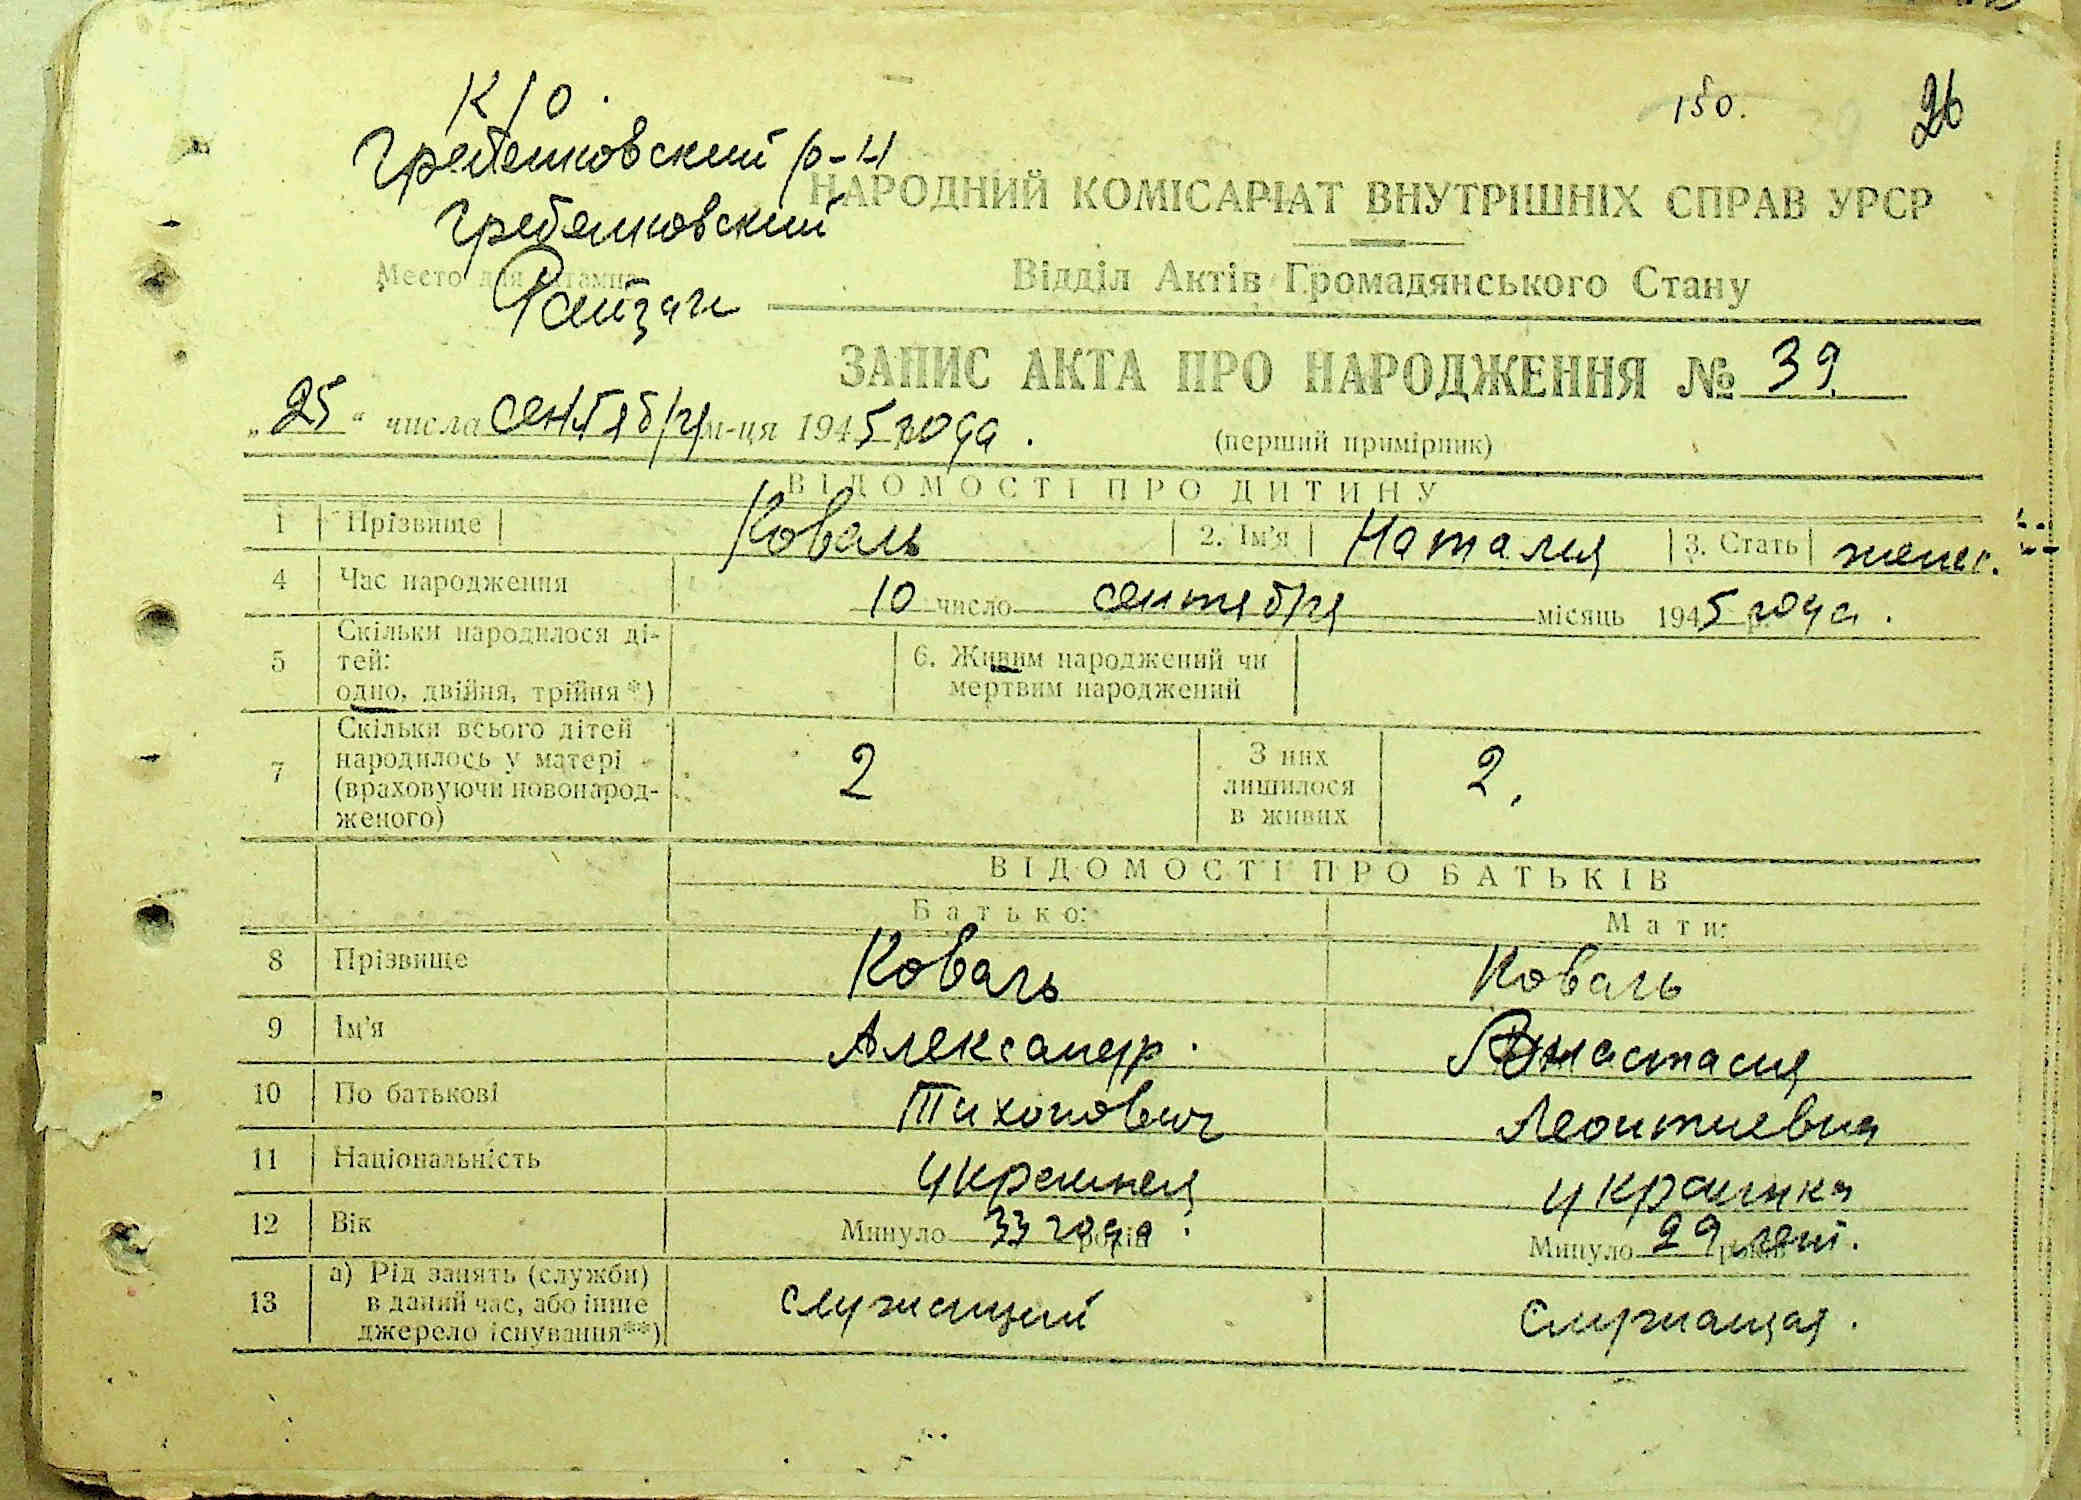 150. 26
К/О.
Гребенковский р-н
НАРОДНИЙ КОМІСАРІАТ ВНУТРІШНІХ СПРАВ УРСР
Гребенковский
Место для штампа
Райзагс
Відділ Актів Громадянського Стану
ЗАПИС АКТА ПРО НАРОДЖЕННЯ № 39.
„25“ числа сентября м-ця 1945 года.
(перший примірник)
ВІДОМОСТІ ПРО ДИТИНУ
1 Прізвище Коваль 2. Ім'я Наталия 3. Стать женс.
4 Час народження 10 число сентября місяць 1945 р. года.
5 Скільки народилося ді-
тей:
одно, двійня, трійня*)
6. Живим народжений чи
мертвим народжений
7 Скільки всього дітей
народилось у матері
(враховуючи новонарод-
женого)
2
З них
лишилося
в живих
2.
ВІДОМОСТІ ПРО БАТЬКІВ
Батько: Мати:
8 Прізвище Коваль Коваль
9 Ім'я Александр. Анастасия
10 По батькові Тихонович Леонтиевна
11 Національність украинец украинка
12 Вік Минуло 33 года років. Минуло 29 лет років.
13 а) Рід занять (служби)
в даний час, або інше
джерело існування**)
служащий служащая.